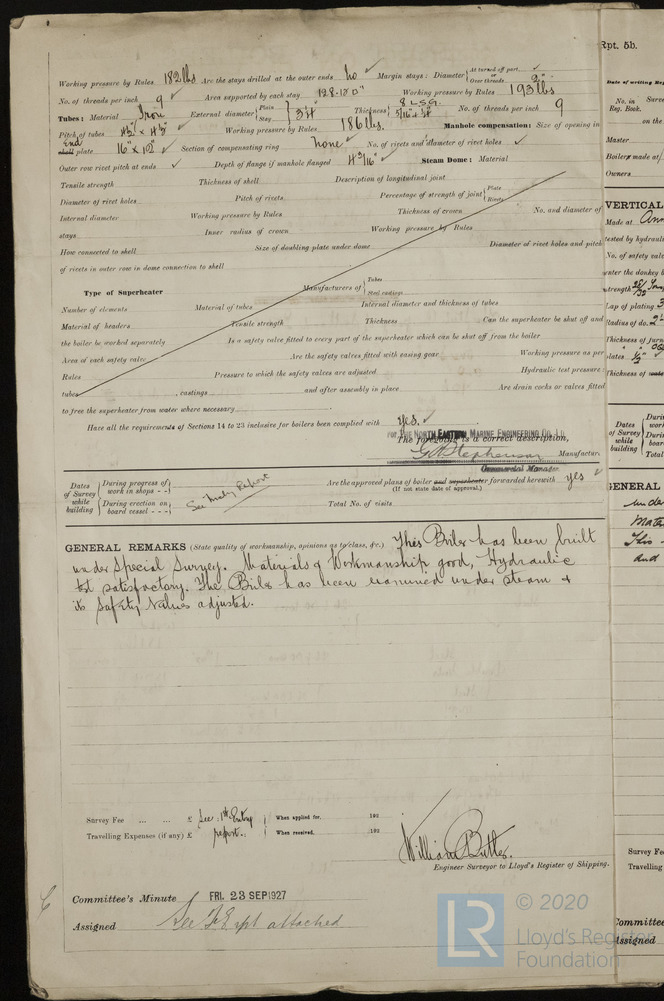 Working pressure by Rules 182 lbs Are the stays drilled at the outer ends No ✓ Margin stays: Diameter { At turned off part, ✓ or Over threads 2"
No. of threads per inch 9 ✓ Area supported by each stay Working pressure by Rules 193 lbs
Tubes: Material Iron External diameter { Plain Stay } 3¼" Thickness { 8 L.S.G. 5/16" & ¼" No. of threads per inch 9
Pitch of tubes 4½" x 4½" Working pressure by Rules 186 lbs. Manhole compensation: Size of opening in
End shell plate 16" x 12" ✓ Section of compensating ring None ✓ No. of rivets and diameter of rivet holes ✓
Outer row rivet pitch at ends ✓ Depth of flange if manhole flanged ✓ Steam Dome: Material
Tensile strength Thickness of shell Description of longitudinal joint
Diameter of rivet holes Pitch of rivets Percentage of strength of joint { Plate Rivets
Internal diameter Working pressure by Rules Thickness of crown No. and diameter of
stays Inner radius of crown Working pressure by Rules
How connected to shell Size of doubling plate under dome Diameter of rivet holes and pitch
of rivets in outer row in dome connection to shell
Type of Superheater Manufacturers of { Tubes Steel castings
Number of elements Material of tubes Internal diameter and thickness of tubes
Material of headers Tensile strength Thickness Can the superheater be shut off and
the boiler be worked separately Is a safety valve fitted to every part of the superheater which can be shut off from the boiler
Area of each safety valve Are the safety valves fitted with easing gear Working pressure as per
Rules Pressure to which the safety valves are adjusted Hydraulic test pressure:
tubes , castings and after assembly in place Are drain cocks or valves fitted
to free the superheater from water where necessary
Have all the requirements of Sections 14 to 23 inclusive for boilers been complied with yes. ✓
FOR THE NORTH EASTERN MARINE ENGINEERING CO. Ld.
The foregoing is a correct description,
G. Stephenson Manufacturer
Commercial Manager
Dates of Survey while building { During progress of work in shops - - } { During erection on board vessel - - - } See Mchy Report
Are the approved plans of boiler and superheater forwarded herewith yes ✓
(If not state date of approval.)
Total No. of visits
GENERAL REMARKS (State quality of workmanship, opinions as to class, &c.) This Boiler has been built
under Special Survey. Materials & Workmanship good, Hydraulic
test satisfactory. The Boiler has been examined under steam &
its Safety Valves adjusted.
Survey Fee ... ... £ See 1st Entry { When applied for, 192
Travelling Expenses (if any) £ report. : { When received, 192
William Butler.
Engineer Surveyor to Lloyd's Register of Shipping.
Committee's Minute FRI. 23 SEP 1927
Assigned See F.E. rpt attached
Rpt. 5b.
Date of writing Rep
No. in Surve
Reg. Book.
on the
Master
Boilers made at
Owners
VERTICAL
Made at Ann
tested by hydraul
No. of safety valv
enter the donkey b
strength
Lap of plating
Radius of do.
Thickness of furn
plates ½" ✓
Thickness of
Dates of Survey while building
Duri
work
Duri
boar
Total
GENERAL
unde
Mate
This
and
Survey Fe
Travelling
Committee
Assigned
LR © 2020
Lloyd's Register
Foundation